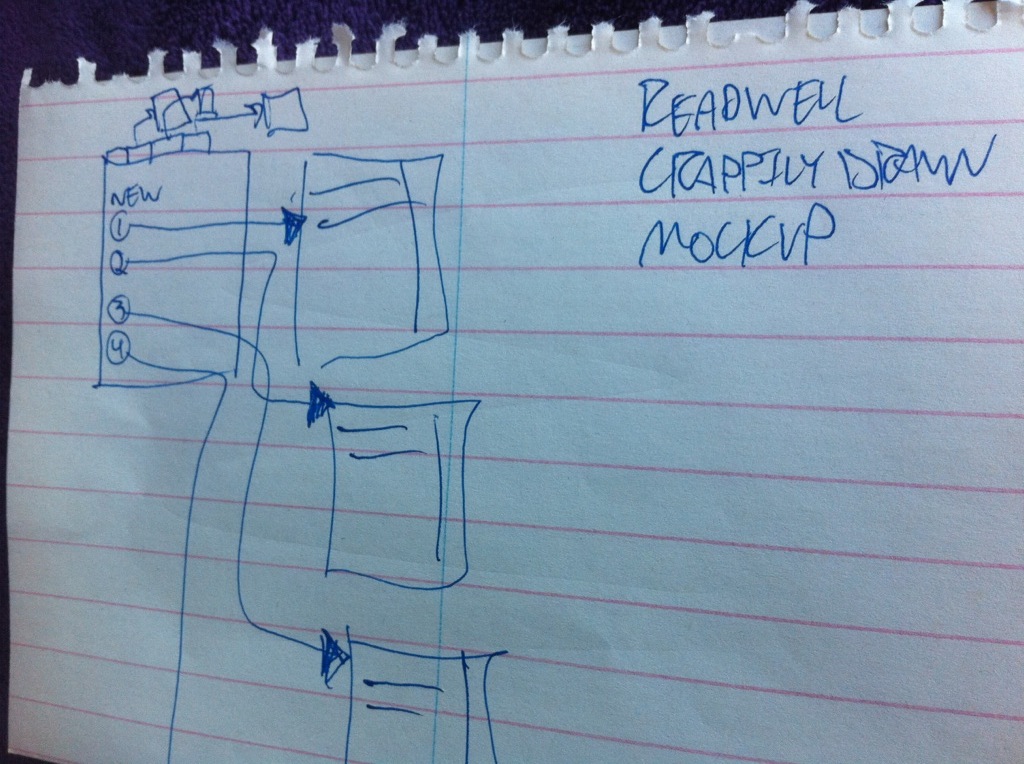 READWELL
CRAPPILY DRAWN
MOCKUP
NEW
1
2
3
4